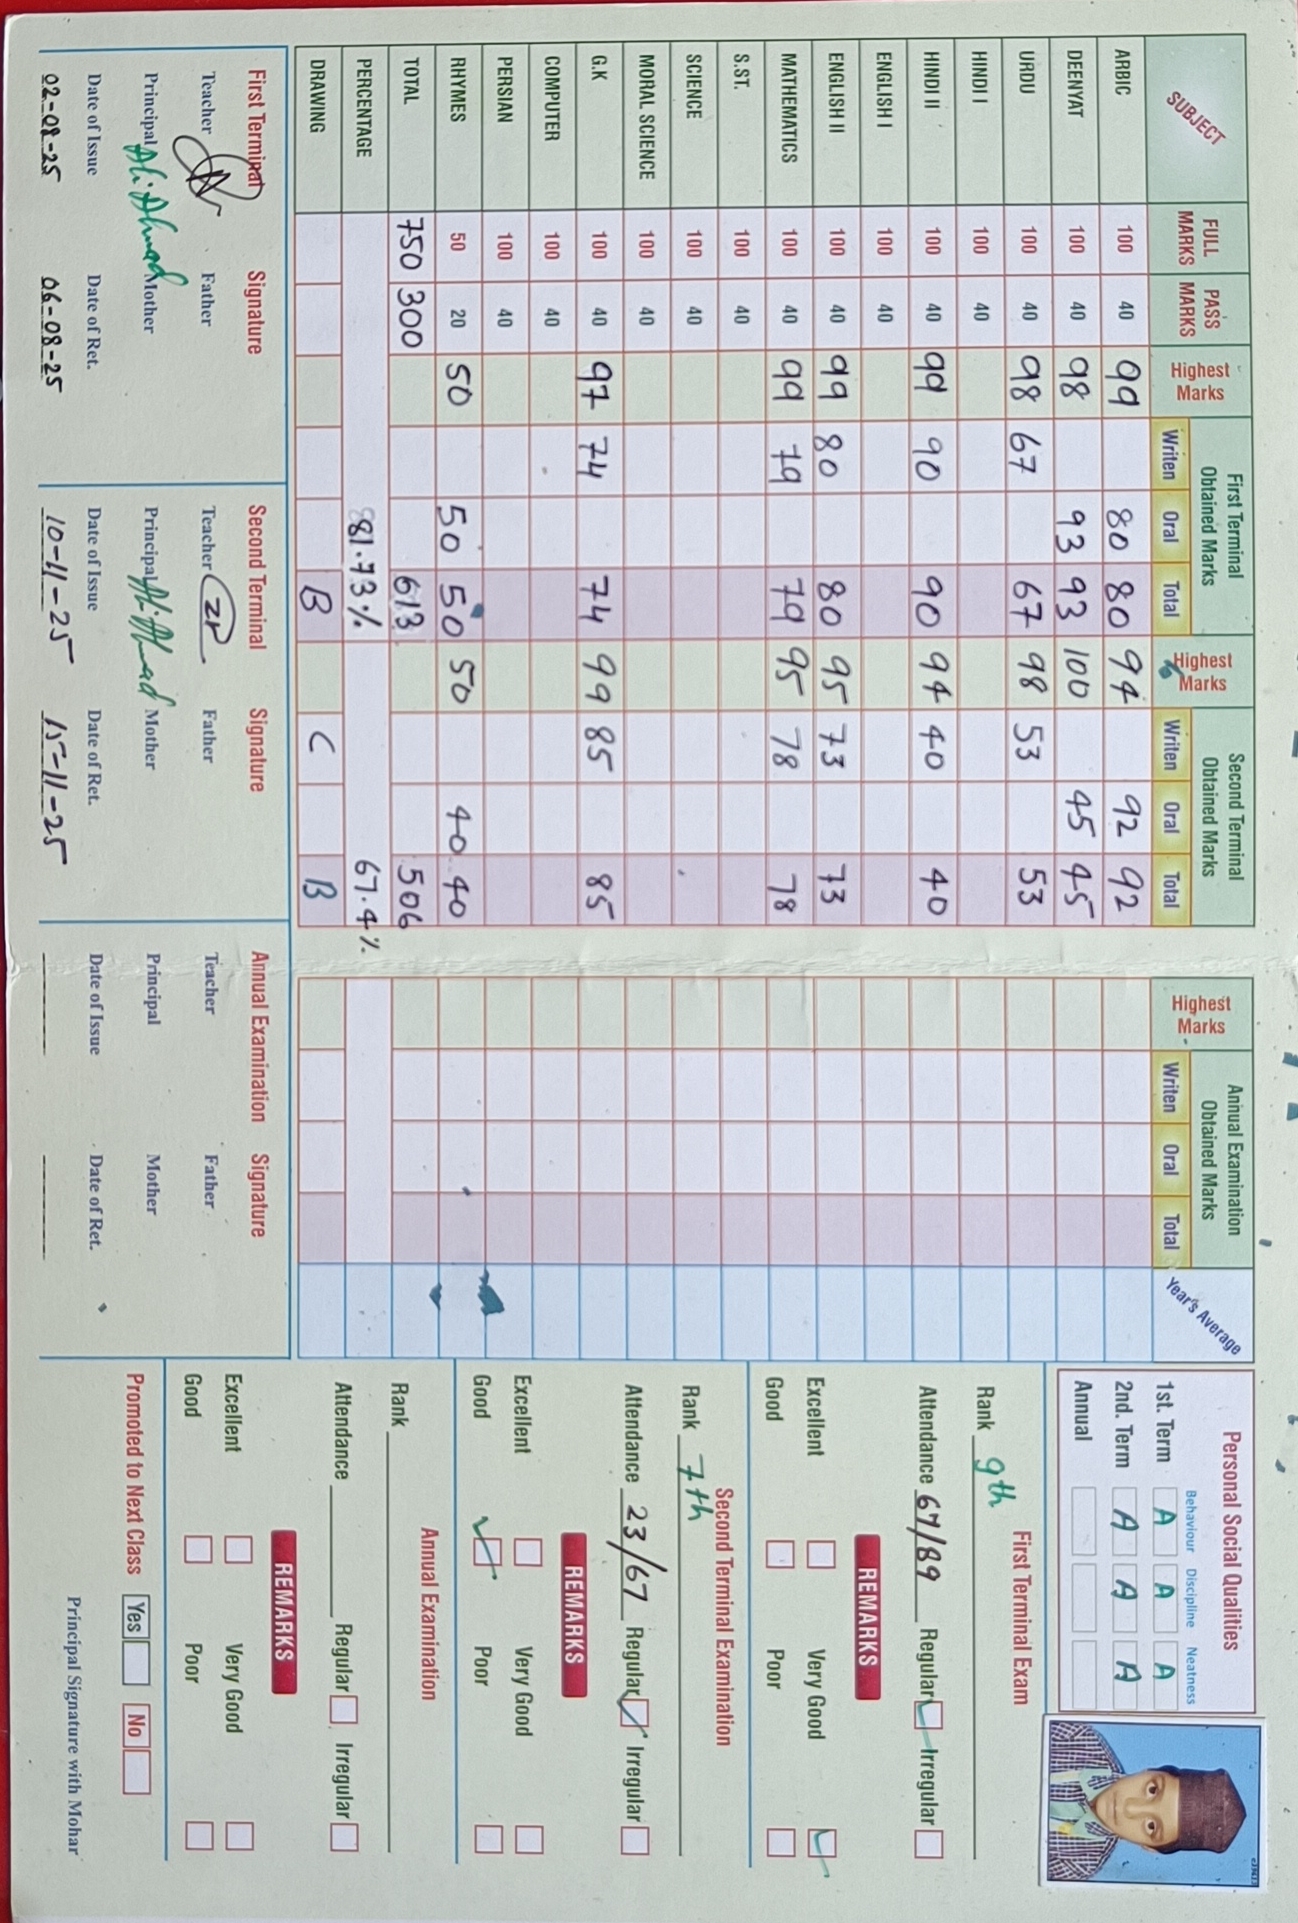 SUBJECT FULL MARKS PASS MARKS Highest Marks First Terminal Obtained Marks Writen Oral Total Highest Marks Second Terminal Obtained Marks Writen Oral Total Highest Marks Annual Examination Obtained Marks Writen Oral Total Year's Average
ARBIC 100 40 99 80 80 94 92 92
DEENYAT 100 40 98 93 93 100 45 45
URDU 100 40 98 67 67 98 53 53
HINDI I 100 40
HINDI II 100 40 99 90 90 94 40 40
ENGLISH I 100 40
ENGLISH II 100 40 99 80 80 95 73 73
MATHEMATICS 100 40 99 79 79 95 78 78
S.ST. 100 40
SCIENCE 100 40
MORAL SCIENCE 100 40
G.K 100 40 97 74 74 99 85 85
COMPUTER 100 40
PERSIAN 100 40
RHYMES 50 20 50 50 50 50 40 40
TOTAL 750 300 613 506
PERCENTAGE 81.73% 67.4%
DRAWING B C B
First Terminal Signature
Teacher Father
Principal Ali Ahmad Mother
Date of Issue Date of Ret.
02-08-25 06-08-25
Second Terminal Signature
Teacher Father
Principal Ali Ahmad Mother
Date of Issue Date of Ret.
10-11-25 15-11-25
Annual Examination Signature
Teacher Father
Principal Mother
Date of Issue Date of Ret.
Personal Social Qualities
Behaviour Discipline Neatness
1st. Term A A A
2nd. Term A A A
Annual
First Terminal Exam
Rank 9th
Attendance 67/89 Regular Irregular
REMARKS
Excellent Very Good
Good Poor
Second Terminal Examination
Rank 7th
Attendance 23/67 Regular Irregular
REMARKS
Excellent Very Good
Good Poor
Annual Examination
Rank
Attendance Regular Irregular
REMARKS
Excellent Very Good
Good Poor
Promoted to Next Class Yes No
Principal Signature with Mohar